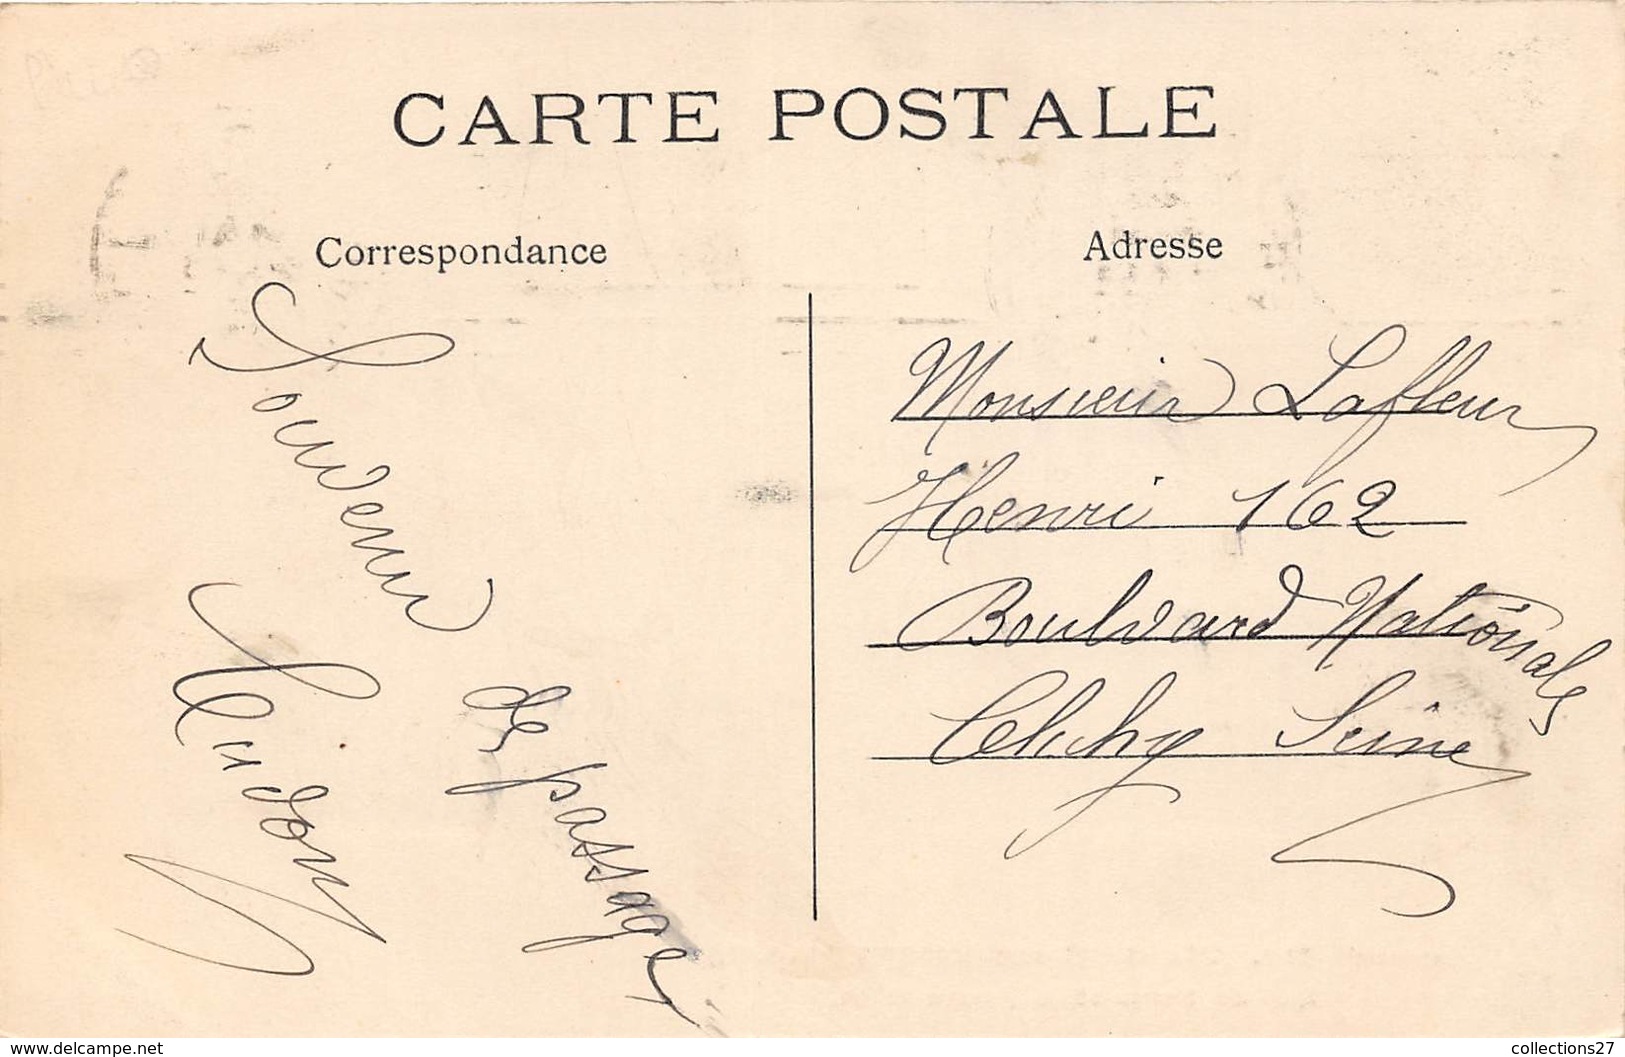 CARTE POSTALE
Correspondance
Adresse
Souvenir
de passage
Monsieur Lafleur
Henri 162
Boulvard Nationale
Clichy Seine
www.delcampe.net
collections27